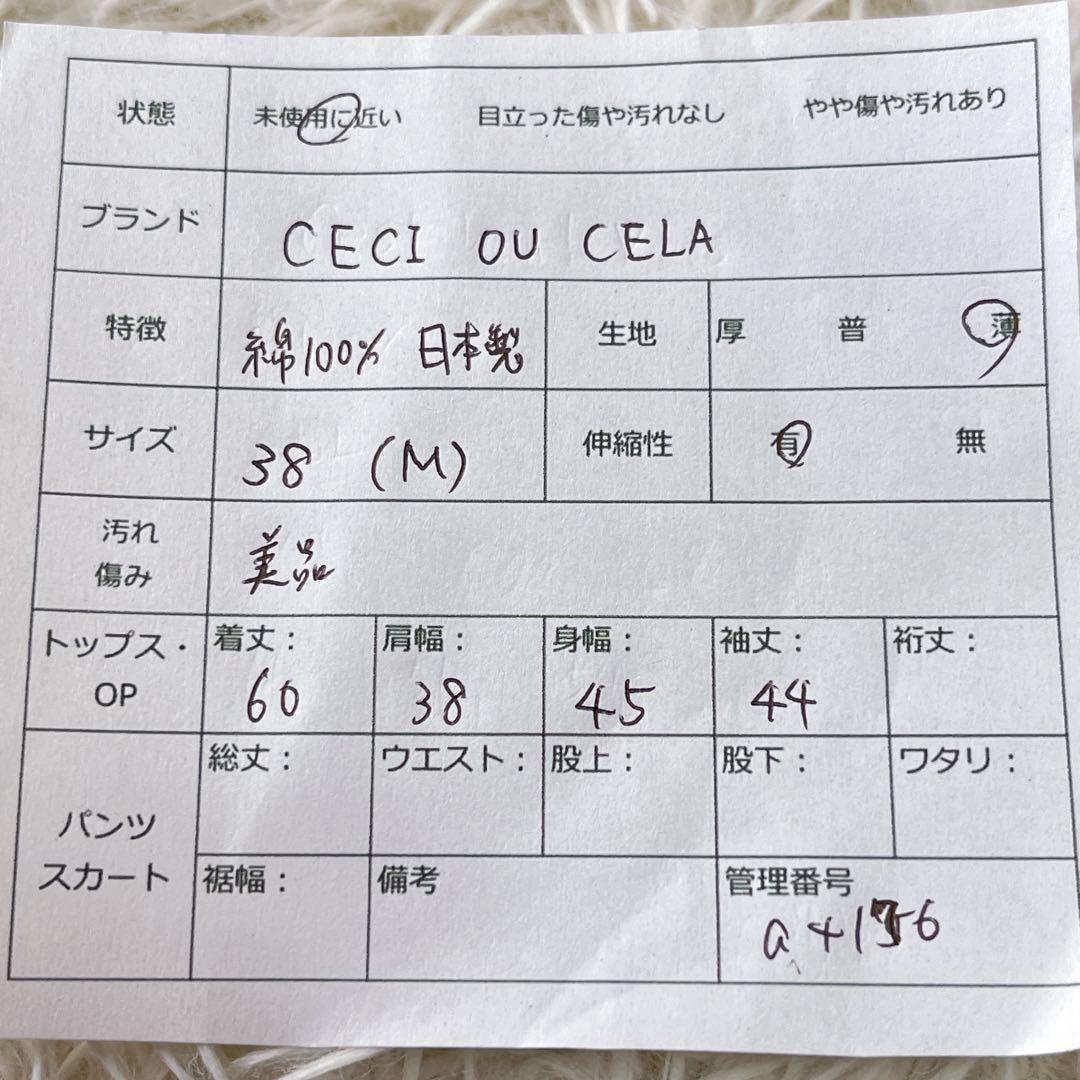 状態 未使用に近い 目立った傷や汚れなし やや傷や汚れあり
ブランド CECI OU CELA
特徴 綿100% 日本製 生地 厚 普 薄
サイズ 38 (M) 伸縮性 有 無
汚れ
傷み 美品
トップス・
OP
着丈: 肩幅: 身幅: 袖丈: 裄丈:
60 38 45 44
パンツ
スカート
総丈: ウエスト: 股上: 股下: ワタリ:
裾幅: 備考 管理番号